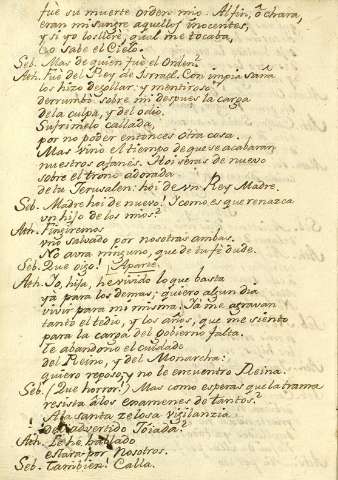 fuè su muerte orden mio. Alfin, ô chara,
eran mi sangre aquellos inocentes,
y si yo los lloré, qual me tocava,
lo sabe el Cielo.
Seb. Mas de quien fuè el Orden?
Ath. Fuè del Rey de Israel. Con impia saña
los hizo degollar: y mentiroso
derrumbò sobre mi despues la carga
de la culpa, y del odio.
Sufrimelo callada,
por no poder entonces otra cosa.
Mas vino el tiempo de que se acabaran
nuestros afanes. Hoi seras de nuevo
sobre el trono adorada
de tu Jerusalen: hoi de un Rey Madre.
Seb. Madre hoi de nuevo! Y como es que renazca
un hijo de los mios?
Ath. Fingiremos
uno salvado por nosotras ambas.
No avra ninguno, que de tu fè dude.
Seb. Que oigo! Aparte.
Ath. Io, hija, he vivido lo que basta
yà para los demas; quiero algun dia
vivir para mi misma. Ya me agravan
tanto el tedio, y los años, que me siento
para la carga del gobierno falta.
Te abandono el cuidado
del Reino, y del Monarcha:
quiero reposo, y no le encuentro Reina.
Seb. (Que horror!) Mas como esperas que la trama
resista à los examenes de tantos?
A la santa zelosa vigilanzia
del advertido Ioiada?
Ath. Le he hablado
estarà por nosotros.
Seb. Tambien! Calla.